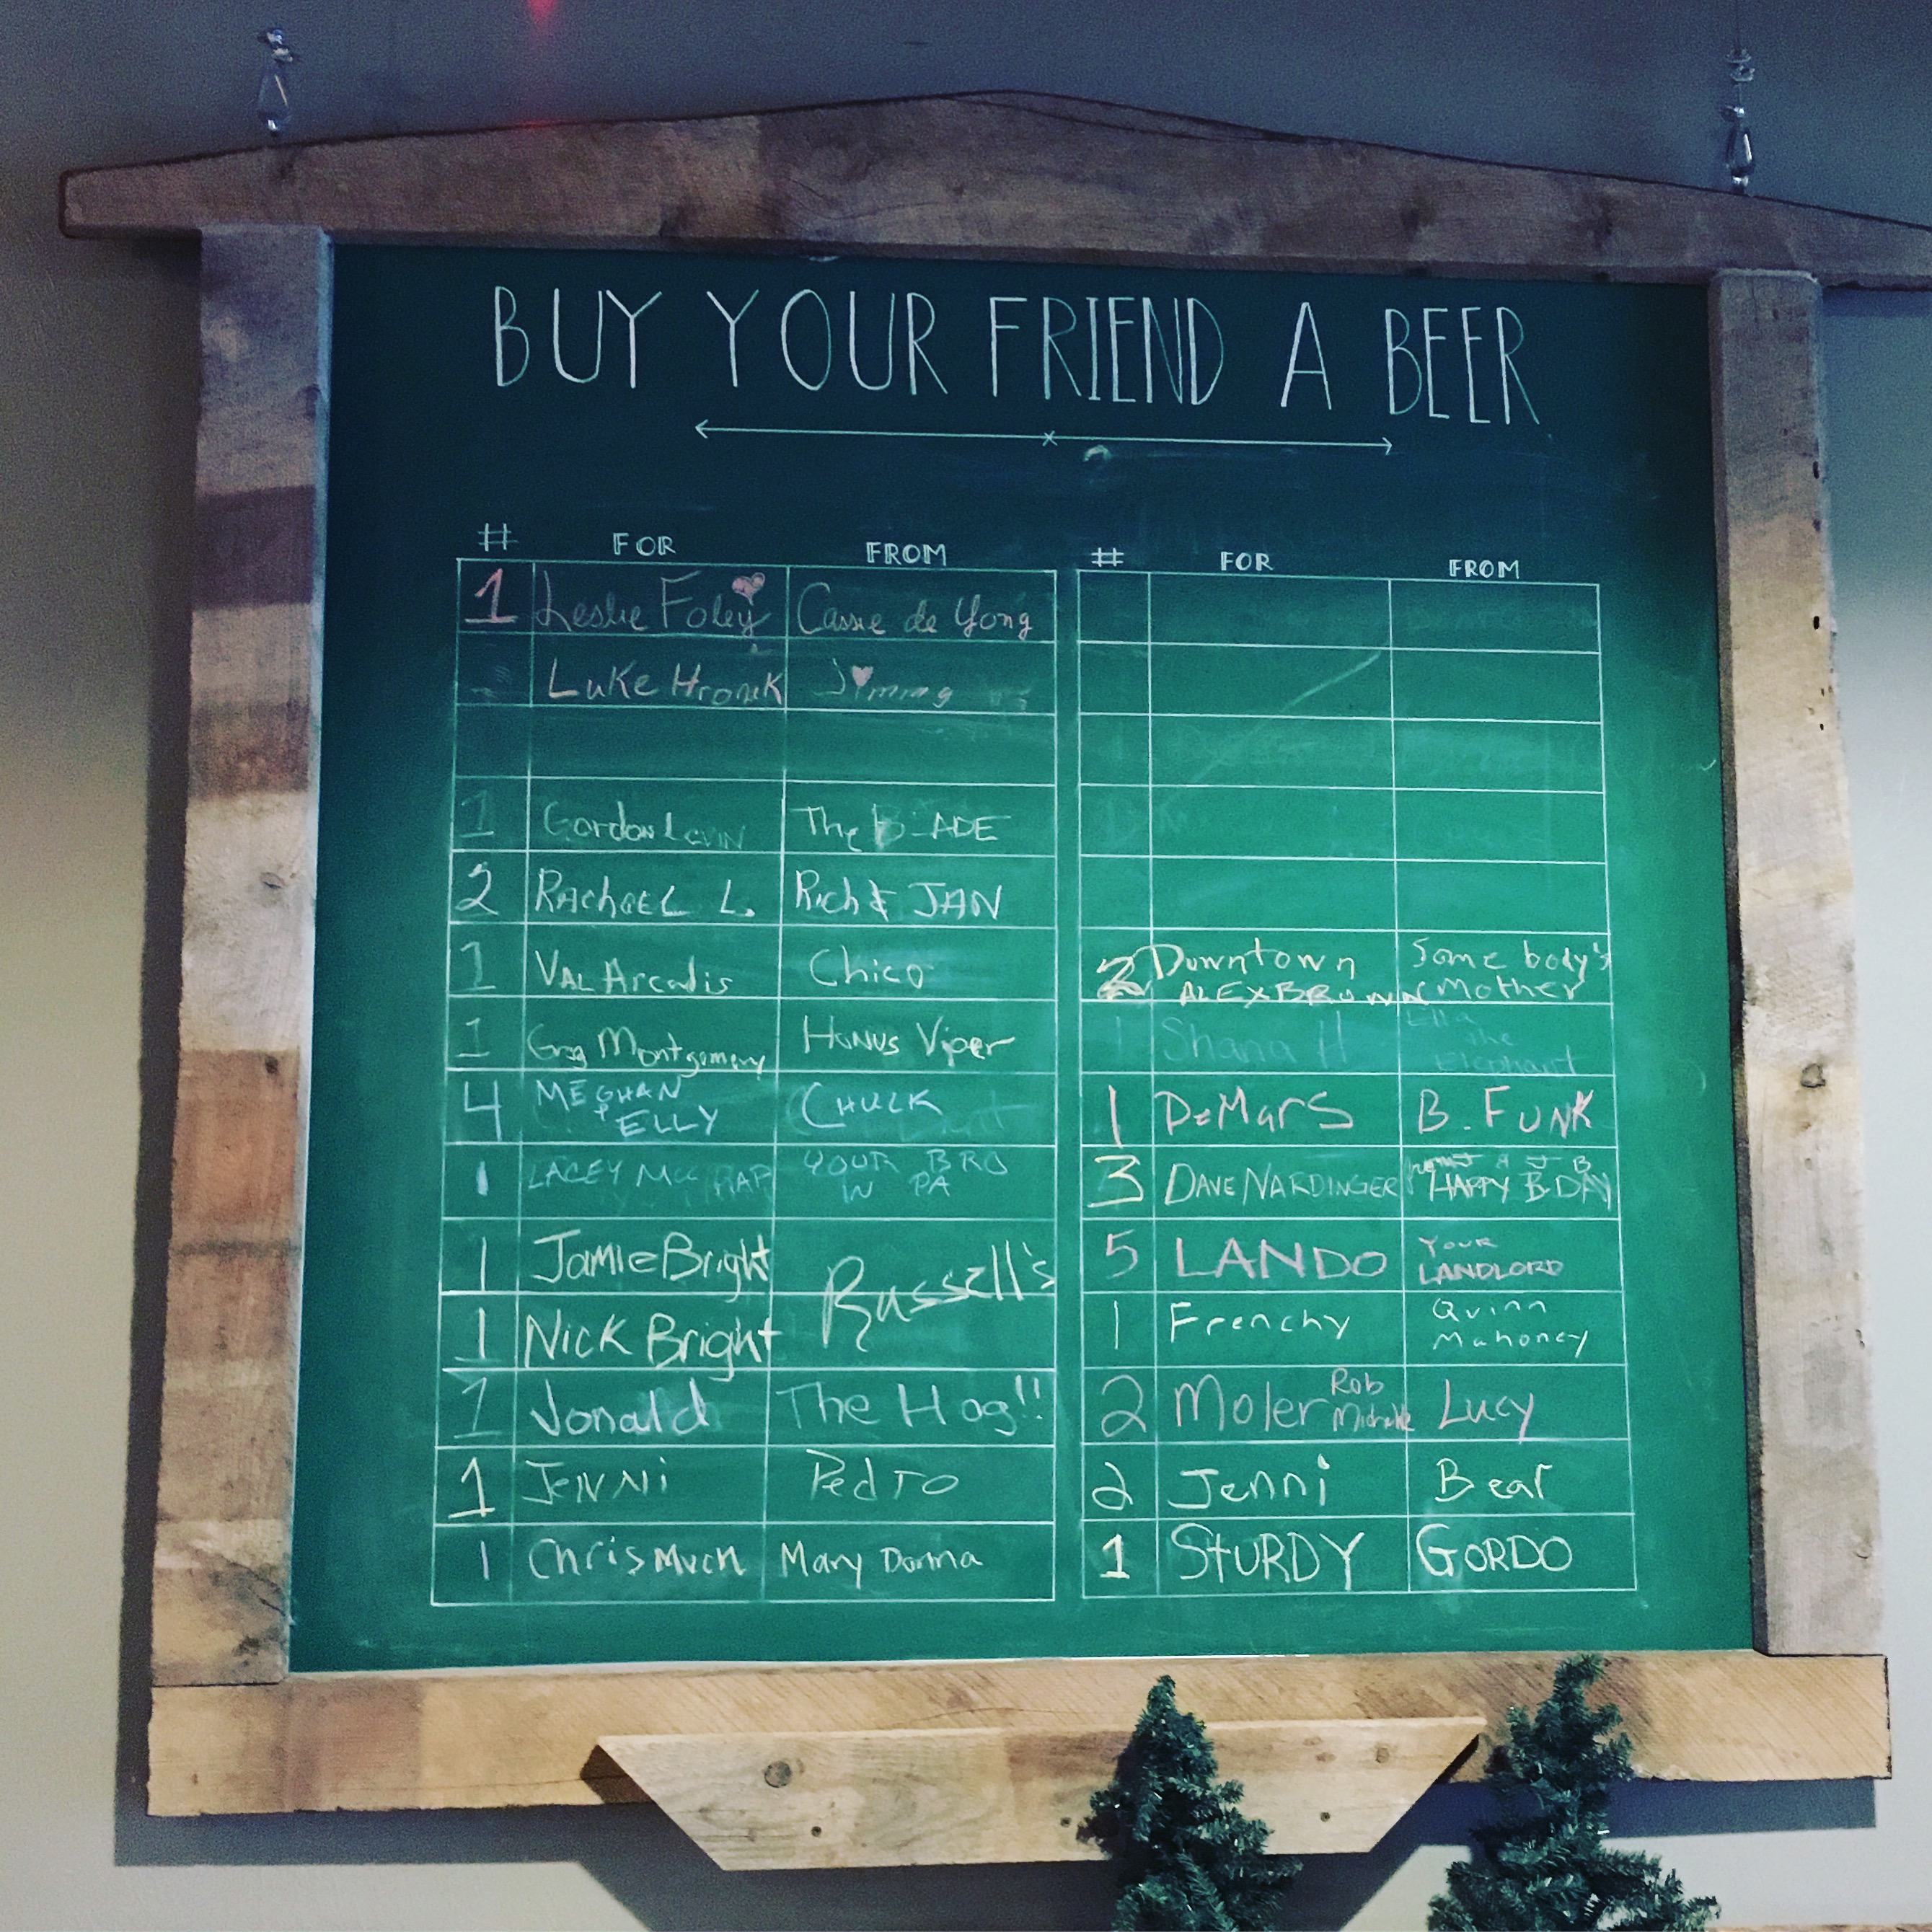 BUY YOUR FRIEND A BEER
# FOR FROM
1 Leslie Foley Cassie de Yong
Luke Hronek Jimmy
1 Gordon Levin The BLADE
2 RAchaEL L. Rich & JAN
1 VAL Arcadis Chico
1 Greg Montgomery HoNus Viper
4 MEGHAN
& ELLY CHULK
1 LACEY YOUR BRO
IN PA
1 JamIE Bright Russell's
1 NICK Bright
1 Jonald The Hog!!
1 JENNi PedrO
1 Chris Much Mary Donna
# FOR FROM
2 Downtown Some body's
ALEX BROWN Mother
1 Shana H Ella
the
Elephant
1 DeMarS B. FUNK
3 DAVE NARDINGER J & J B
HAPPY B-DAY
5 LANDO YOUR
LANDLORD
1 Frenchy Quinn
Mahoney
2 Moler Rob
Michelle Lucy
2 Jenni Bear
1 StURDY GORDO